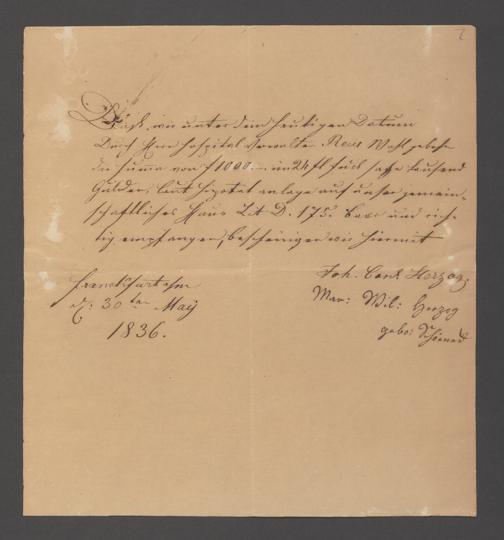 2
Daß wir unter dem heutigen Datum
Durch Herr Hospital Verwalter Reus Wohlgebohr
die Summa von f 1000.— im 24 fl fuß sage tausend
Gulden, laut Hypotekanlage auf unser gemein-
schaftliches Haus Lit D. 175. baar und rich-
tig empfangen, bescheinigen wir hiermit
Franckfurt a/m
d: 30 ten Maÿ
1836.
Joh. Conr. Herzog,
Mar: Wil: Herzog
gebo: